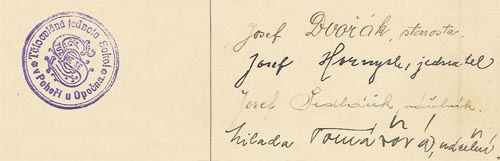 Tělocvičná jednota Sokol
v Pohoří u Opočna.
Josef Dvořák, starosta.
Josef Hornych, jednatel
Josef Sedláček, náčelník.
Milada Tomášová, náčelní